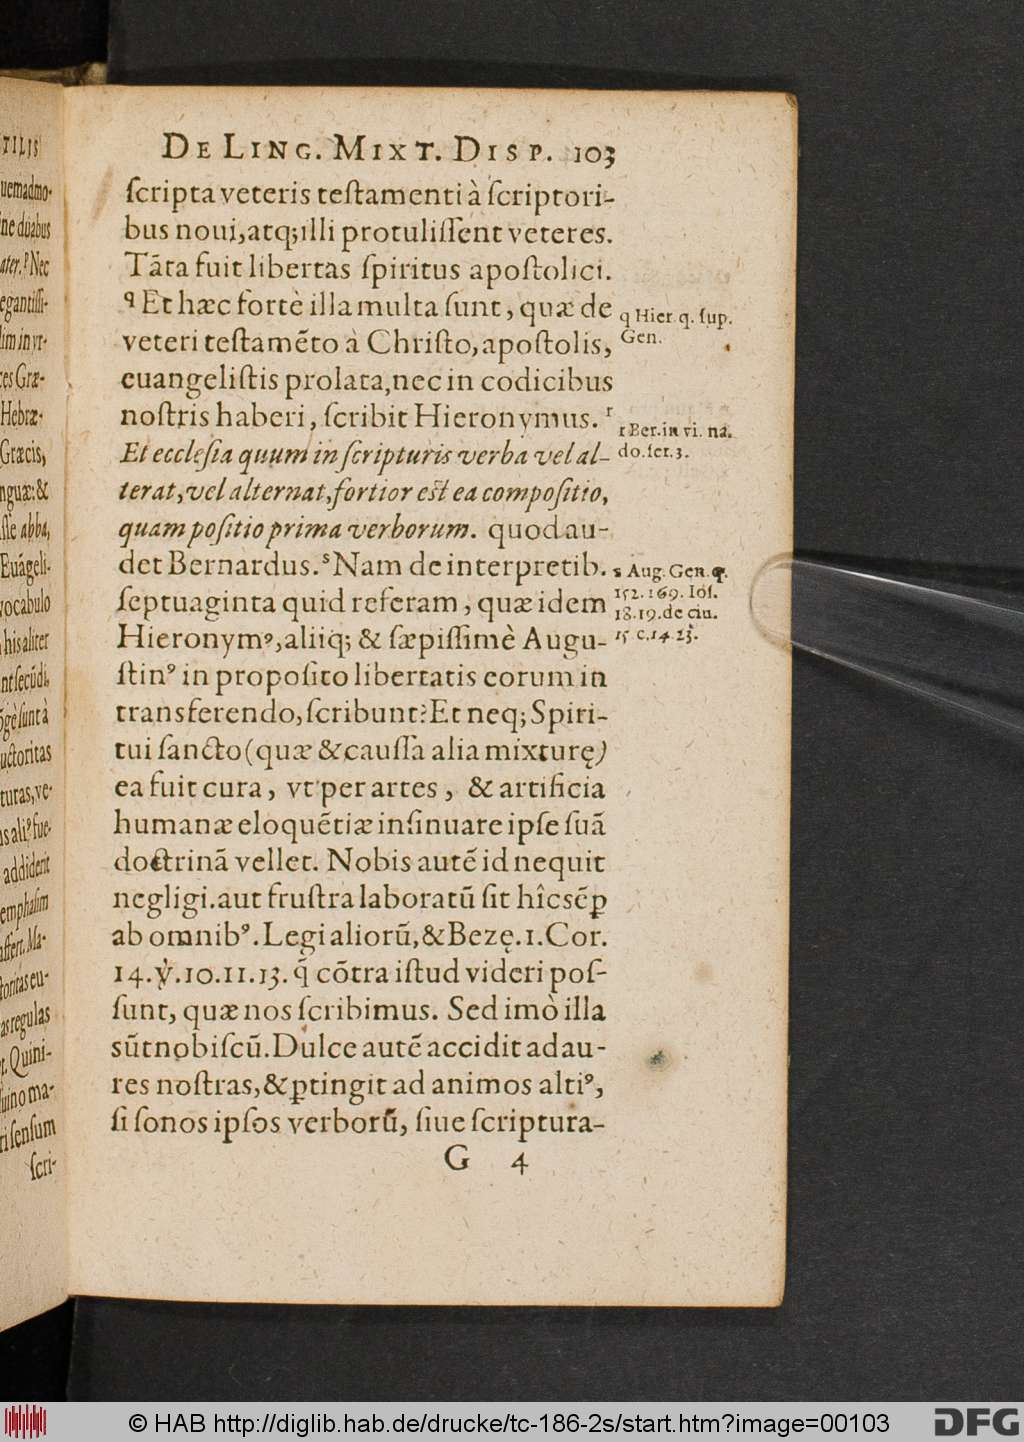 DE LING. MIXT. DISP. 103
ſcripta veteris teſtamenti à ſcriptori-
bus noui, atq; illi protuliſſent veteres.
Tãta fuit libertas ſpiritus apoſtolici.
q Et hæc fortè illa multa ſunt, quæ de
veteri teſtamẽto à Chriſto, apoſtolis,
euangeliſtis prolata, nec in codicibus
noſtris haberi, ſcribit Hieronymus. r
Et eccleſia quum in ſcripturis verba vel al-
terat, vel alternat, fortior eſt ea compoſitio,
quam poſitio prima verborum. quod au-
det Bernardus. s Nam de interpretib.
ſeptuaginta quid referam, quæ idem
Hieronymꝰ, aliiq; & ſæpiſſimè Augu-
ſtinꝰ in propoſito libertatis eorum in
transferendo, ſcribunt? Et neq; Spiri-
tui ſancto (quæ & cauſſa alia mixturę)
ea fuit cura, vt per artes, & artificia
humanæ eloquẽtiæ inſinuare ipſe ſuã
doctrinã vellet. Nobis autẽ id nequit
negligi. aut fruſtra laboratũ ſit hîc sẽꝑ
ab omnibꝰ. Legi aliorũ, & Bezę. 1. Cor.
14. ỳ. 10. 11. 13. q̃ cõtra iſtud videri poſ-
ſunt, quæ nos ſcribimus. Sed imò illa
sũt nobiſcũ. Dulce autẽ accidit ad au-
res noſtras, & ꝑtingit ad animos altiꝰ,
ſi ſonos ipſos verborũ, ſiue ſcriptura-
G 4
q Hier. q. ſup.
Gen.
r Ber. in vi. na.
do. ſer. 3.
s Aug. Gen. q.
152. 169. Ioſ.
18. 19. de ciu.
15 c. 14. 23.
TILIS
uemadmo-
ine duabus
ater. p Nec
egantiſſi-
lim in vr-
ces Græ-
Hebræ-
Græcis,
nguæ: &
ſſe abba,
Euãgeli-
vocabulo
his aliter
nt ſecũdi,
õgè ſunt à
uctoritas
turas, ve-
as aliꝰ fue-
addiderit
emphaſim
affert. Ma-
toritas eu-
as regulas
t. Quini-
uino ma-
ri ſenſum
ſcri-
© HAB http://diglib.hab.de/drucke/tc-186-2s/start.htm?image=00103
DFG